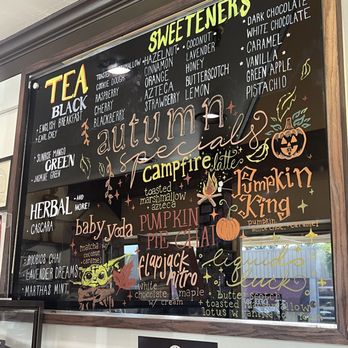 SWEETENERS
TEA
BLACK
• ENGLISH
BREAKFAST
• EARL GREY
• SUNRISE MANGO
GREEN
• JASMINE GREEN
HERBAL AND MORE!
• CASCARA
• ROOIBOS CHAI
• LAVENDER DREAMS
• MARTHAS MINT
TOASTED
COOKIE DOUGH
RASPBERRY
CHERRY
BLACKBERRY
HAZELNUT
CINNAMON
ORANGE
AZTECA
STRAWBERRY
• COCONUT
LAVENDER
HONEY
BUTTERSCOTCH
LEMON
• DARK CHOCOLATE
WHITE CHOCOLATE
• CARAMEL
• VANILLA
GREEN APPLE
PISTACHIO
autumn
specials
campfire latte
toasted
marshmallow
azteca
Pumpkin
King
pumpkin
baby yoda
matcha
coconut
caramel
PUMPKIN
PIE CHAI
flapjack
nitro
white
chocolate maple
w/ cream
liquid
luck
butterscotch
toasted marshmallow
lotus w/ vanilla